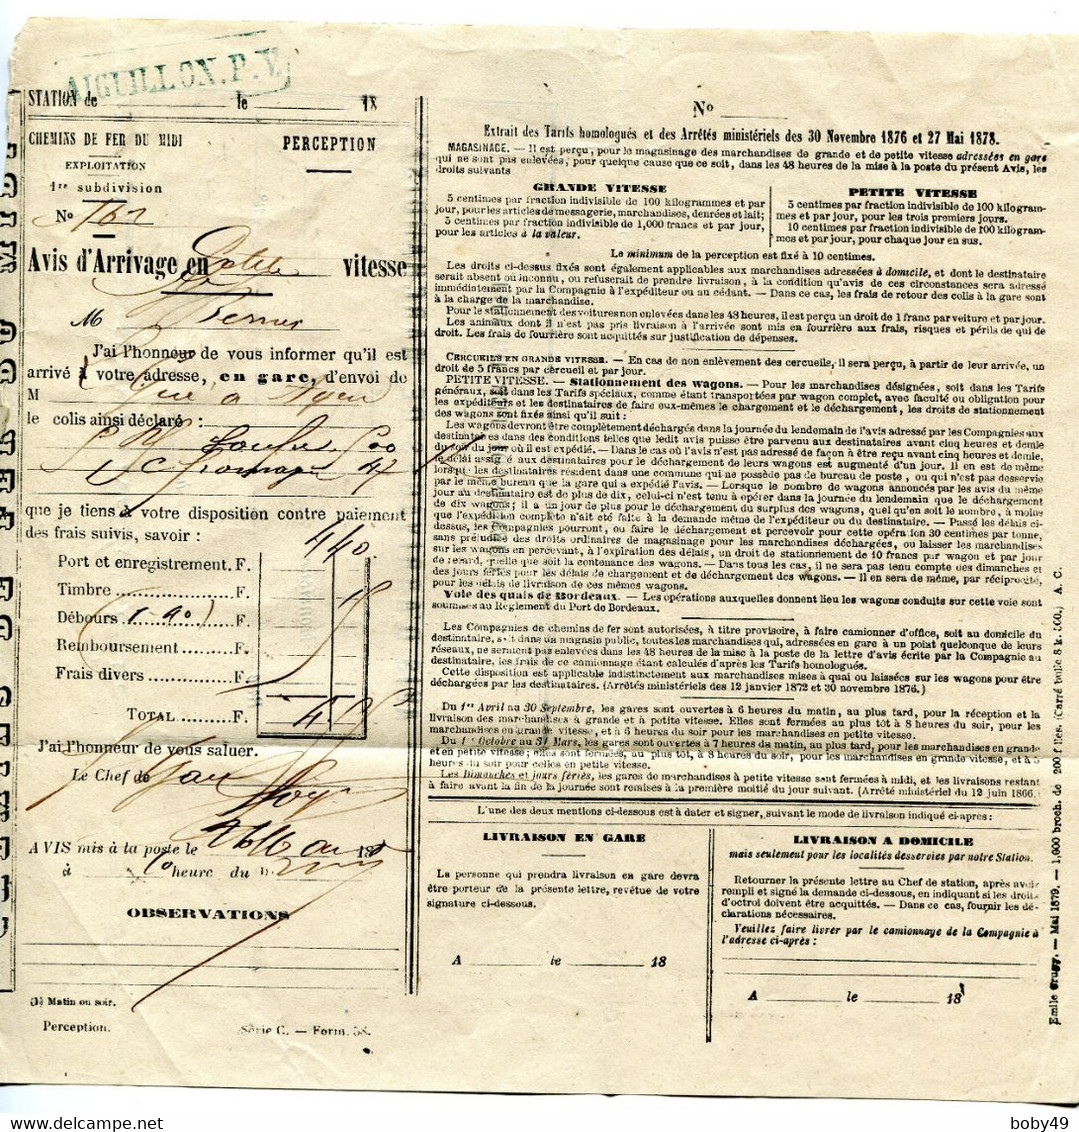 AIGUILLON.P.V.
STATION de le 18
CHEMINS DE FER DU MIDI
EXPLOITATION
1re subdivision
No 162
PERCEPTION
Avis d'Arrivage en Petite vitesse
M
J'ai l'honneur de vous informer qu'il est
arrivé à votre adresse, en gare, d'envoi de
M
le colis ainsi déclaré :
500
47
que je tiens à votre disposition contre paiement
des frais suivis, savoir :
Port et enregistrement. F. 4 40
Timbre F.
Débours 1.90 F.
Remboursement F.
Frais divers F.
TOTAL F.
J'ai l'honneur de vous saluer.
Le Chef de Gare
AVIS mis à la poste le 18
à heure du
OBSERVATIONS
(1) Matin ou soir.
Perception. Série C. — Form. 58.
No
Extrait des Tarifs homologués et des Arrêtés ministériels des 30 Novembre 1876 et 27 Mai 1878.
MAGASINAGE. — Il est perçu, pour le magasinage des marchandises de grande et de petite vitesse adressées en gare
qui ne sont pas enlevées, pour quelque cause que ce soit, dans les 48 heures de la mise à la poste du présent Avis, les
droits suivants
GRANDE VITESSE
5 centimes par fraction indivisible de 100 kilogrammes et par
jour, pour les articles de messagerie, marchandises, denrées et lait;
5 centimes par fraction indivisible de 1,000 francs et par jour,
pour les articles à la valeur.
PETITE VITESSE
5 centimes par fraction indivisible de 100 kilogram-
mes et par jour, pour les trois premiers jours.
10 centimes par fraction indivisible de 100 kilogram-
mes et par jour, pour chaque jour en sus.
Le minimum de la perception est fixé à 10 centimes.
Les droits ci-dessus fixés sont également applicables aux marchandises adressées à domicile, et dont le destinataire
serait absent ou inconnu, ou refuserait de prendre livraison, à la condition qu'avis de ces circonstances sera adressé
immédiatement par la Compagnie à l'expéditeur ou au cédant. — Dans ce cas, les frais de retour des colis à la gare sont
à la charge de la marchandise.
Pour le stationnement des voitures non enlevées dans les 48 heures, il est perçu un droit de 1 franc par voiture et par jour.
Les animaux dont il n'est pas pris livraison à l'arrivée sont mis en fourrière aux frais, risques et périls de qui de
droit. Les frais de fourrière sont acquittés sur justification de dépenses.
CERCUEILS EN GRANDE VITESSE. — En cas de non enlèvement des cercueils, il sera perçu, à partir de leur arrivée, un
droit de 5 francs par cercueil et par jour.
PETITE VITESSE. — Stationnement des wagons. — Pour les marchandises désignées, soit dans les Tarifs
généraux, soit dans les Tarifs spéciaux, comme étant transportées par wagon complet, avec faculté ou obligation pour
les expéditeurs et les destinataires de faire eux-mêmes le chargement et le déchargement, les droits de stationnement
des wagons sont fixés ainsi qu'il suit :
Les wagons devront être complètement déchargés dans la journée du lendemain de l'avis adressé par les Compagnies aux
destinataires dans des conditions telles que ledit avis puisse être parvenu aux destinataires avant cinq heures et demie
du soir du jour où il est expédié. — Dans le cas où l'avis n'est pas adressé de façon à être reçu avant cinq heures et demie,
le délai assigné aux destinataires pour le déchargement de leurs wagons est augmenté d'un jour. Il en est de même
lorsque les destinataires résident dans une commune qui ne possède pas de bureau de poste, ou qui n'est pas desservie
par le même bureau que la gare qui a expédié l'avis. — Lorsque le nombre de wagons annoncés par les avis du même
jour au destinataire est de plus de dix, celui-ci n'est tenu à opérer dans la journée du lendemain que le déchargement
de dix wagons; il a un jour de plus pour le déchargement du surplus des wagons, quel qu'en soit le nombre, à moins
que l'expédition complète n'ait été faite à la demande même de l'expéditeur ou du destinataire. — Passé les délais ci-
dessus, les Compagnies pourront, ou faire le déchargement et percevoir pour cette opération 30 centimes par tonne,
sans préjudice des droits ordinaires de magasinage pour les marchandises déchargées, ou laisser les marchandises
sur les wagons en percevant, à l'expiration des délais, un droit de stationnement de 10 francs par wagon et par jour
de retard, quelle que soit la contenance des wagons. — Dans tous les cas, il ne sera pas tenu compte des dimanches et
des jours fériés pour les délais de chargement et de déchargement des wagons. — Il en sera de même, par réciprocité,
pour les délais de livraison de ces mêmes wagons.
Voie des quais de Bordeaux. — Les opérations auxquelles donnent lieu les wagons conduits sur cette voie sont
soumises au Règlement du Port de Bordeaux.
Les Compagnies de chemins de fer sont autorisées, à titre provisoire, à faire camionner d'office, soit au domicile du
destinataire, soit dans un magasin public, toutes les marchandises qui, adressées en gare à un point quelconque de leurs
réseaux, ne seraient pas enlevées dans les 48 heures de la mise à la poste de la lettre d'avis écrite par la Compagnie au
destinataire, les frais de ce camionnage étant calculés d'après les Tarifs homologués.
Cette disposition est applicable indistinctement aux marchandises mises à quai ou laissées sur les wagons pour être
déchargées par les destinataires. (Arrêtés ministériels des 12 janvier 1872 et 30 novembre 1876.)
Du 1er Avril au 30 Septembre, les gares sont ouvertes à 6 heures du matin, au plus tard, pour la réception et la
livraison des marchandises à grande et à petite vitesse. Elles sont fermées au plus tôt à 8 heures du soir, pour les
marchandises en grande vitesse, et à 6 heures du soir pour les marchandises en petite vitesse.
Du 1er Octobre au 31 Mars, les gares sont ouvertes à 7 heures du matin, au plus tard, pour les marchandises en grande
et en petite vitesse; elles sont fermées, au plus tôt, à 8 heures du soir, pour les marchandises en grande vitesse, et à 5
heures du soir pour celles en petite vitesse.
Les Dimanches et jours fériés, les gares de marchandises à petite vitesse sont fermées à midi, et les livraisons restant
à faire avant la fin de la journée sont remises à la première moitié du jour suivant. (Arrêté ministériel du 12 juin 1866.)
L'une des deux mentions ci-dessous est à dater et signer, suivant le mode de livraison indiqué ci-après :
LIVRAISON EN GARE
La personne qui prendra livraison en gare devra
être porteur de la présente lettre, revêtue de votre
signature ci-dessous.
A le 18
LIVRAISON A DOMICILE
mais seulement pour les localités desservies par notre Station.
Retourner la présente lettre au Chef de station, après avoir
rempli et signé la demande ci-dessous, en indiquant si les droits
d'octroi doivent être acquittés. — Dans ce cas, fournir les dé-
clarations nécessaires.
Veuillez faire livrer par le camionnage de la Compagnie à
l'adresse ci-après :
A le 18
Emile Crugy. — Mai 1879. — 1,000 broch. de 200 flles. (Carré bulle 8 k. 500.) A. C.
boby49